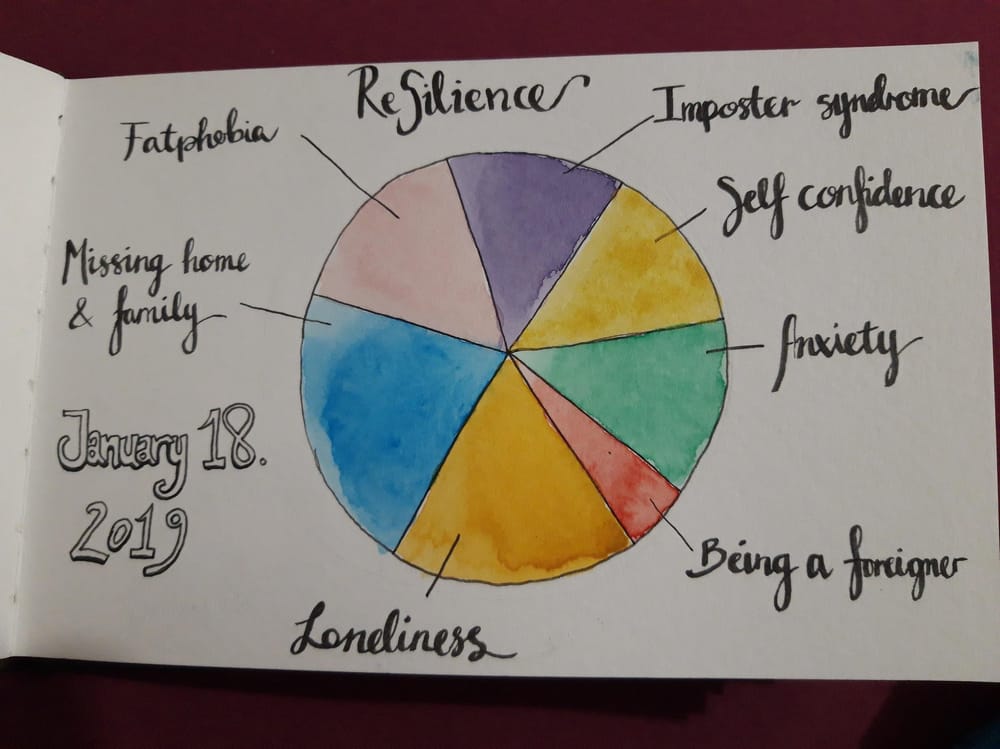 Resilience
Imposter syndrome
Fatphobia
Self confidence
Missing home
& family
Anxiety
January 18.
2019
Being a foreigner
Loneliness